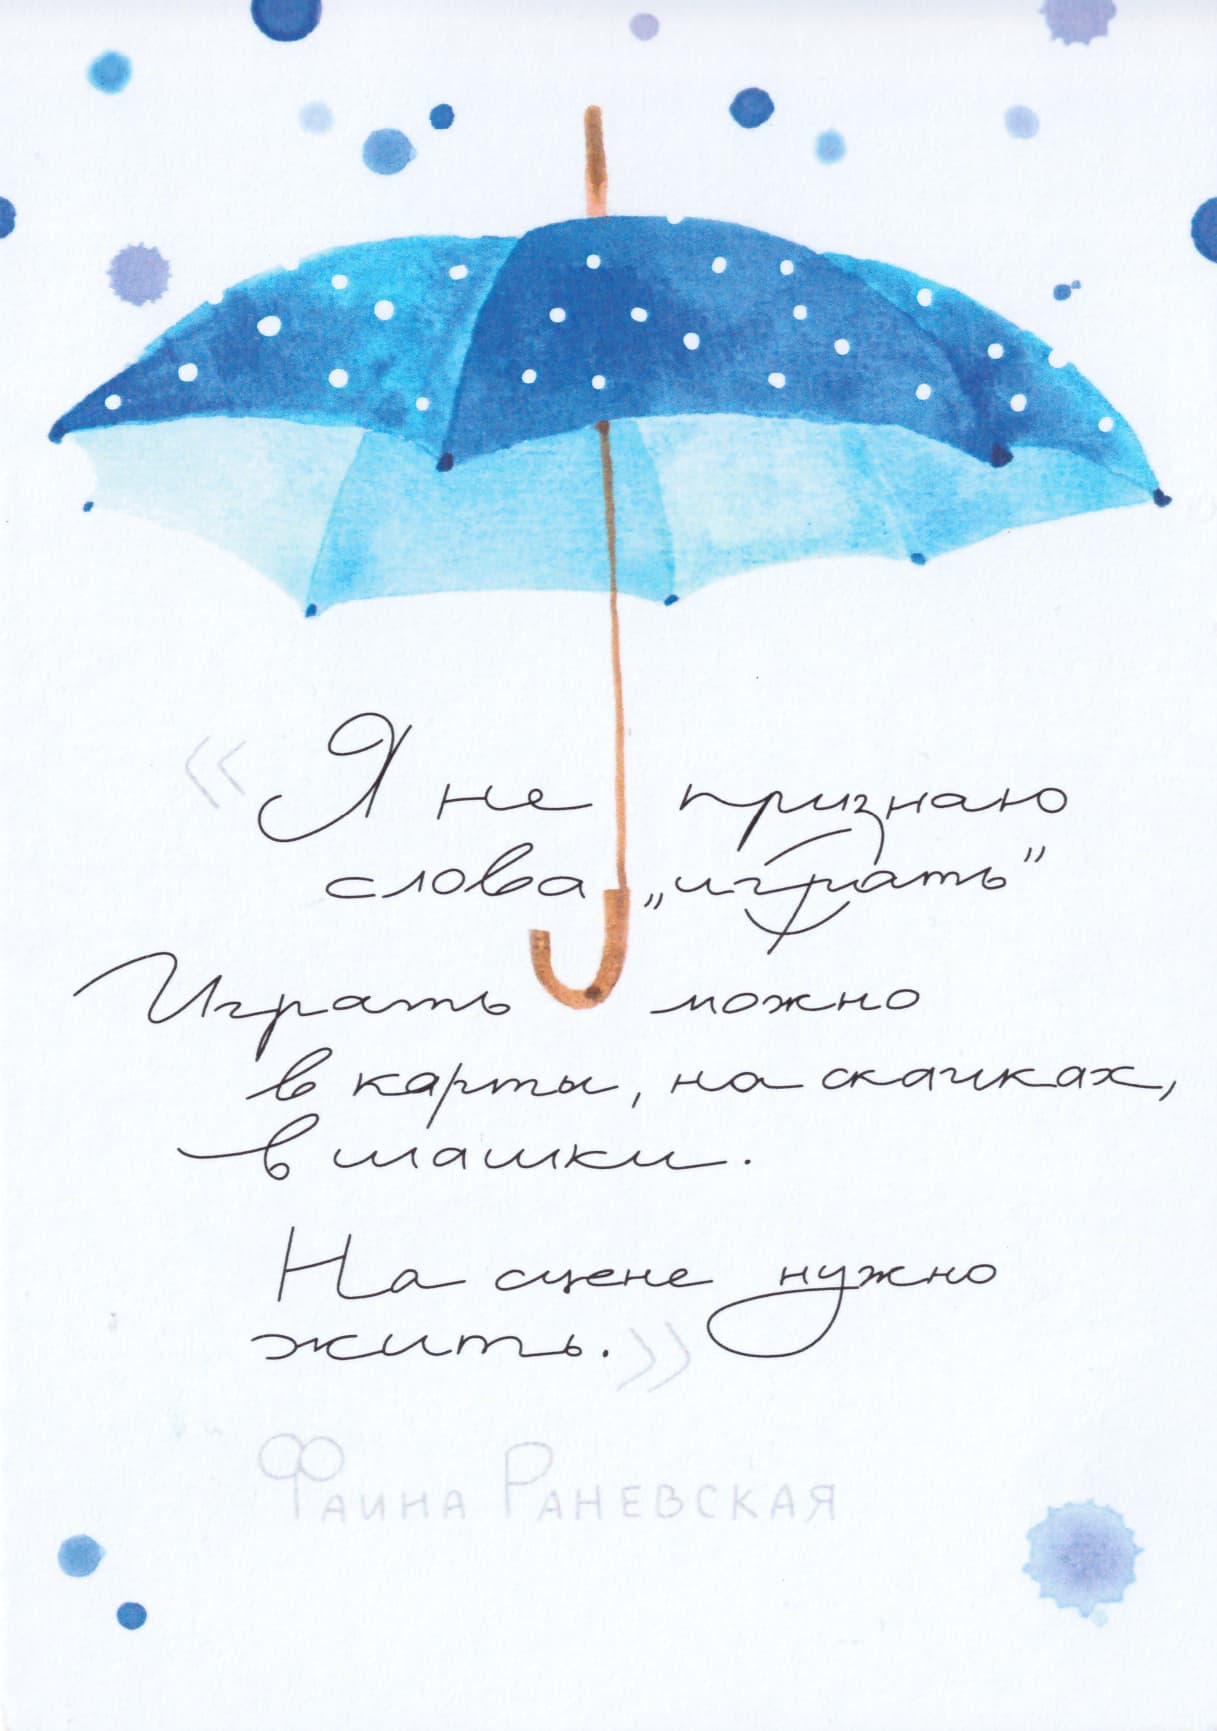 « Я не признаю
слова „играть”
Играть можно
в карты, на скачках,
в шашки.
На сцене нужно
жить. »
Фаина Раневская